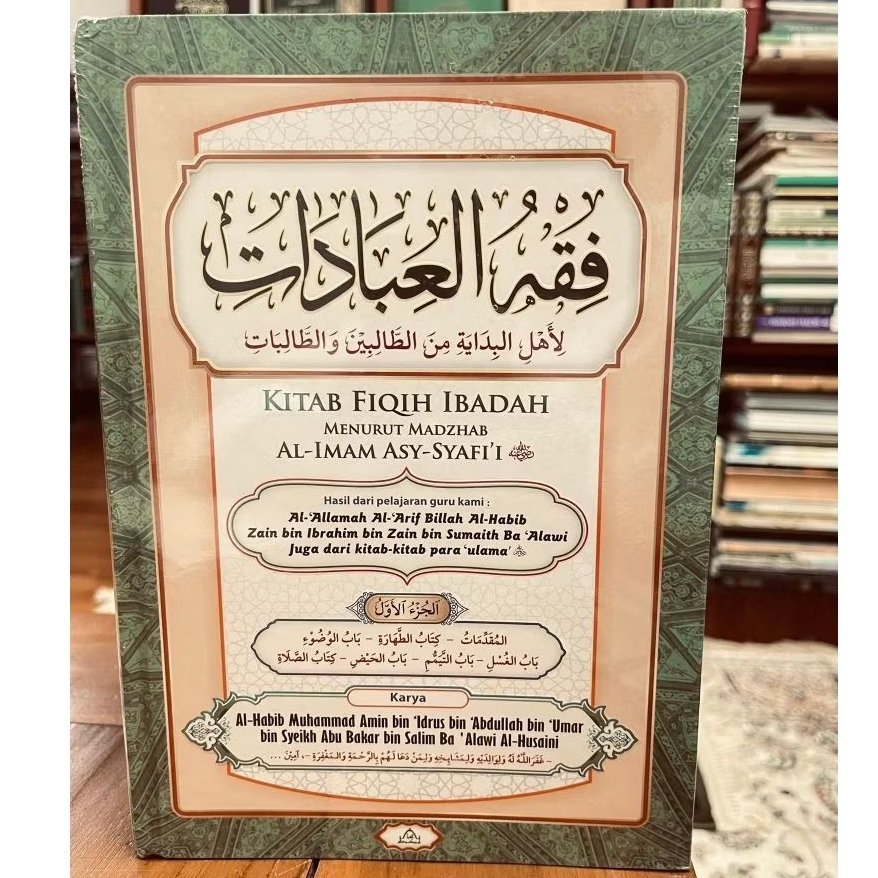 فِقْهُ العِبَادَاتِ
لِأَهْلِ البِدَايَةِ مِنَ الطَّالِبِيْنَ وَالطَّالِبَاتِ
KITAB FIQIH IBADAH
MENURUT MADZHAB
AL-IMAM ASY-SYAFI'I
Hasil dari pelajaran guru kami :
Al-'Allamah Al-'Arif Billah Al-Habib
Zain bin Ibrahim bin Zain bin Sumaith Ba 'Alawi
Juga dari kitab-kitab para 'ulama'
الجُزْءُ الأَوَّلُ
المُقَدِّمَاتُ - كِتَابُ الطَّهَارَةِ - بَابُ الوُضُوْءِ
بَابُ الغُسْلِ - بَابُ التَّيَمُّمِ - بَابُ الحَيْضِ - كِتَابُ الصَّلَاةِ
Karya
Al-Habib Muhammad Amin bin 'Idrus bin 'Abdullah bin 'Umar
bin Syeikh Abu Bakar bin Salim Ba 'Alawi Al-Husaini
- غَفَرَ اللّٰهُ لَهُ وَلِوَالِدَيْهِ وَلِمَشَايِخِهِ وَلِمَنْ دَعَا لَهُمْ بِالرَّحْمَةِ وَالمَغْفِرَةِ -، آمِيْنَ ...